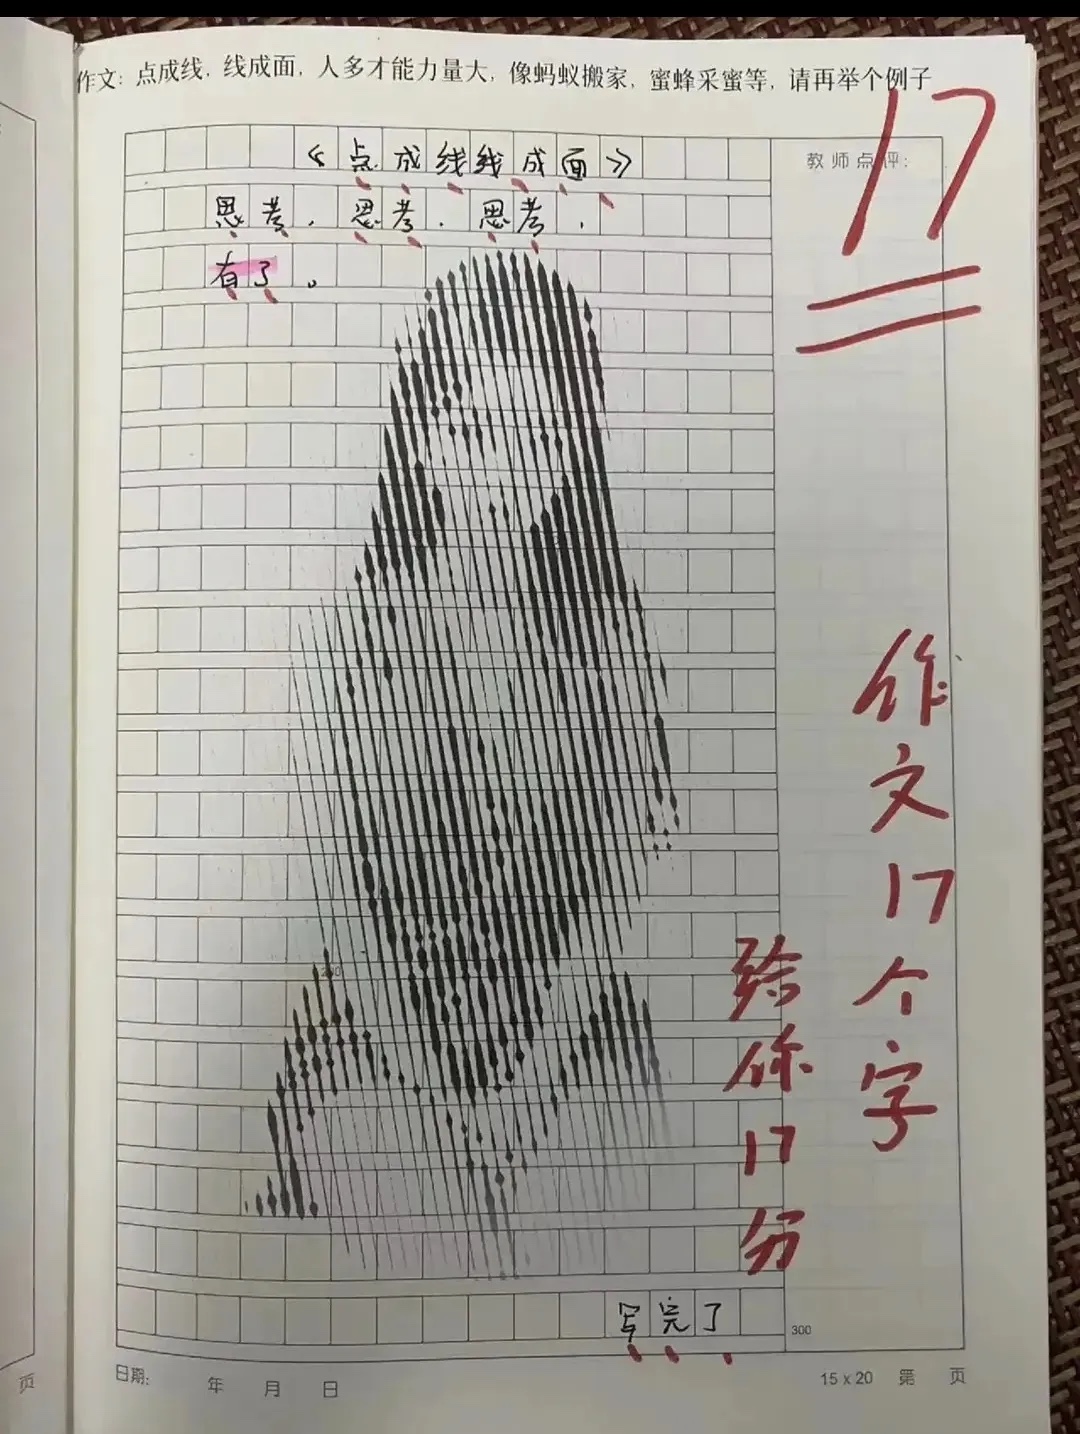 作文：点成线，线成面，人多才能力量大，像蚂蚁搬家，蜜蜂采蜜等，请再举个例子
17
教师点评：
《点成线线成面》
思考，思考，思考，
有了。
作文17个字
给你17分
写完了
300
日期： 年 月 日
15 x 20 第 页
页